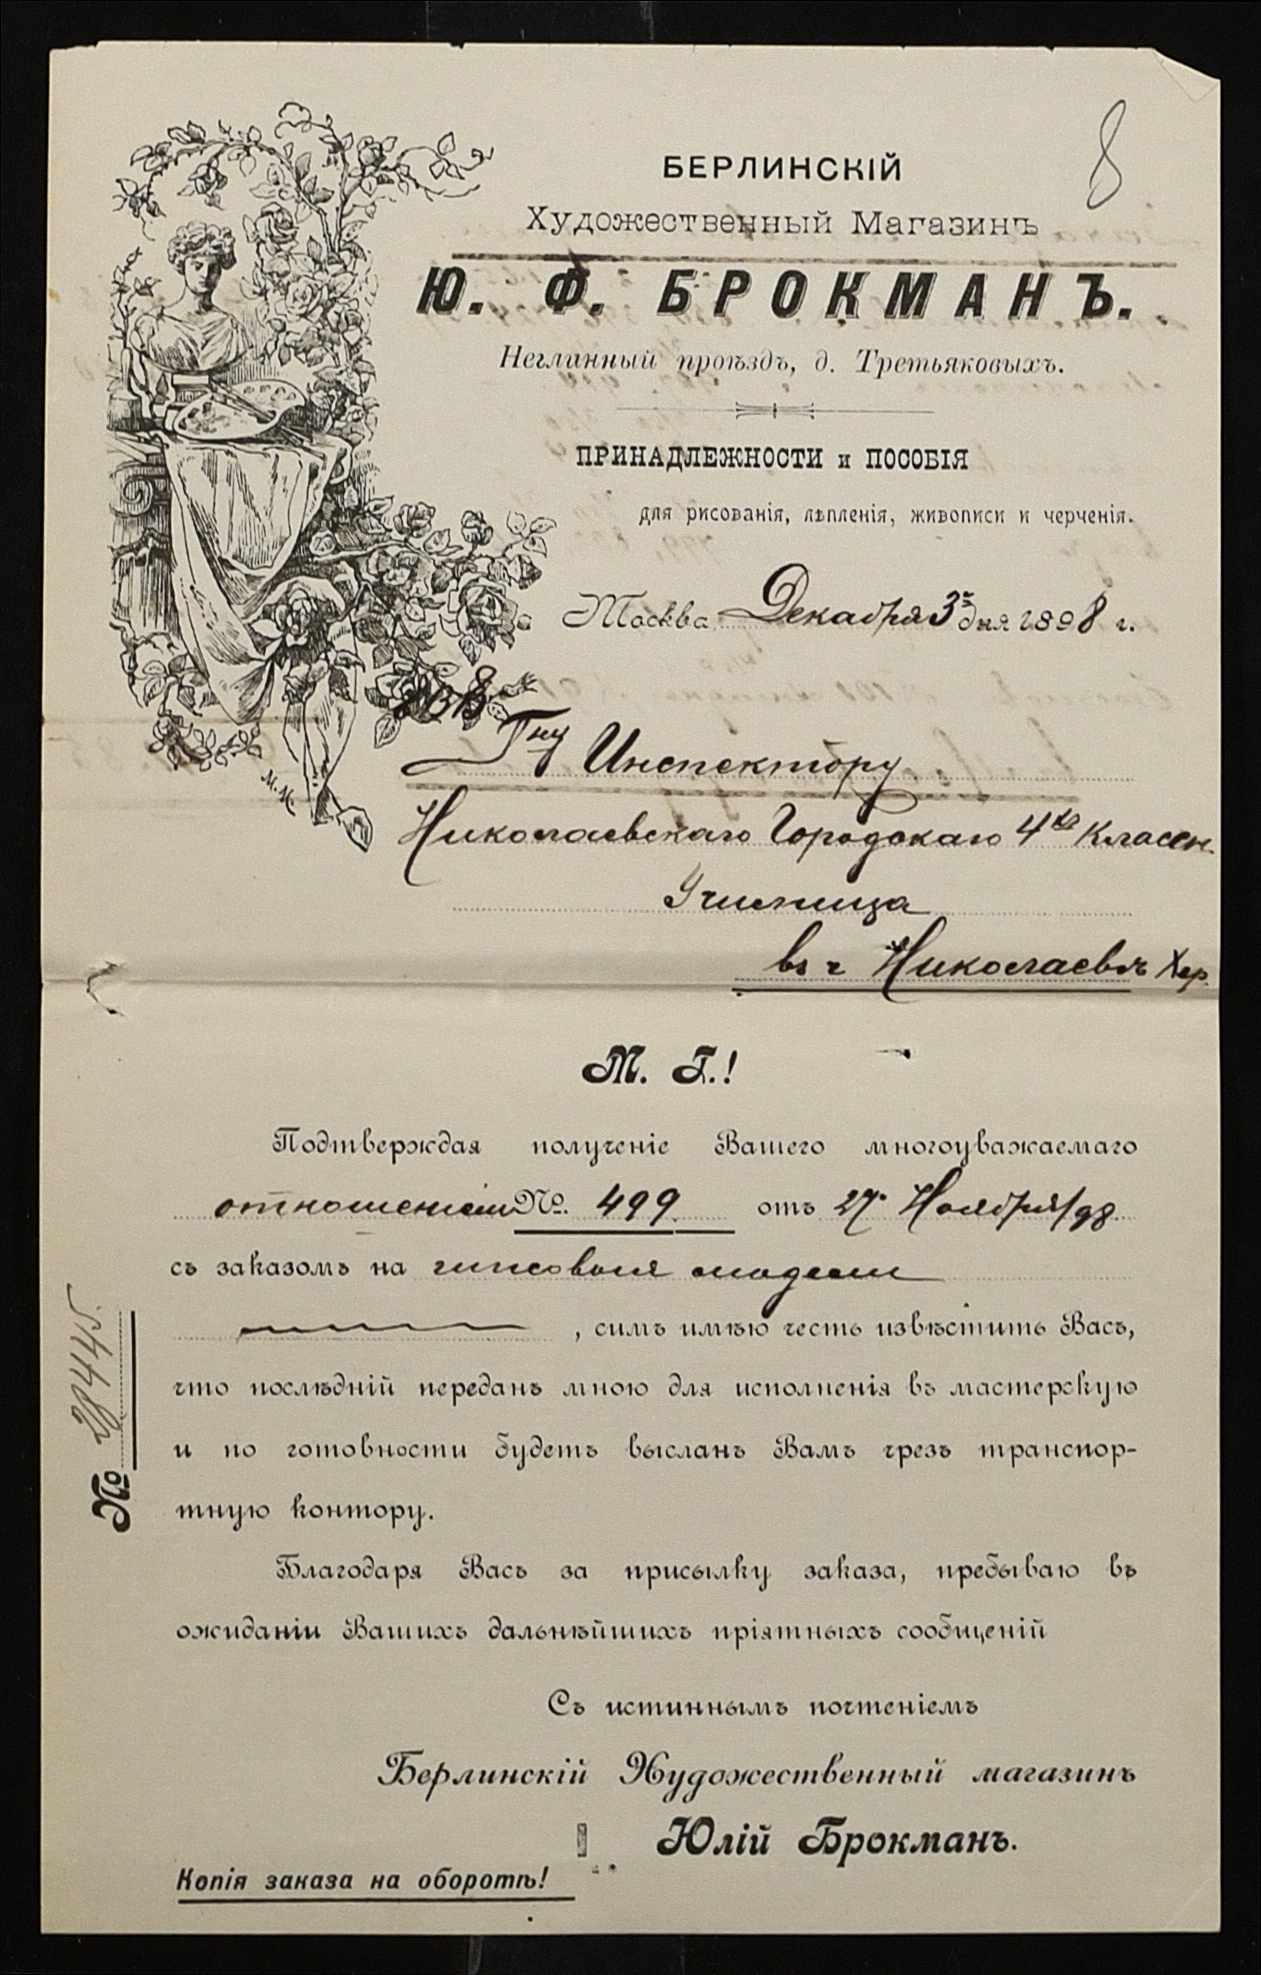 8
БЕРЛИНСКІЙ
Художественный Магазинъ
Ю. Ф. БРОКМАНЪ.
Неглинный проѣздъ, д. Третьяковыхъ.
ПРИНАДЛЕЖНОСТИ и ПОСОБІЯ
для рисованія, лѣпленія, живописи и черченія.
Москва Декабря 3 дня 1898 г.
М.М.
Гну Инспектору
Николаевскаго Городскаго 4хъ Класен.
Училища
въ г Николаевѣ Хер.
М. Г.!
Подтверждая полученіе Вашего многоуважаемаго
отношенія №. 499 отъ 27 Ноября/98
съ заказомъ на гипсовыя модели
, симъ имѣю честь извѣстить Васъ,
что послѣдній переданъ мною для исполненія въ мастерскую
и по готовности будетъ высланъ Вамъ чрезъ транспор-
тную контору.
Благодаря Васъ за присылку заказа, пребываю въ
ожиданіи Вашихъ дальнѣйшихъ пріятныхъ сообщеній
Съ истиннымъ почтеніемъ
Берлинскій Художественный магазинъ
Юлій Брокманъ.
Копія заказа на оборотѣ!
№ 28445.